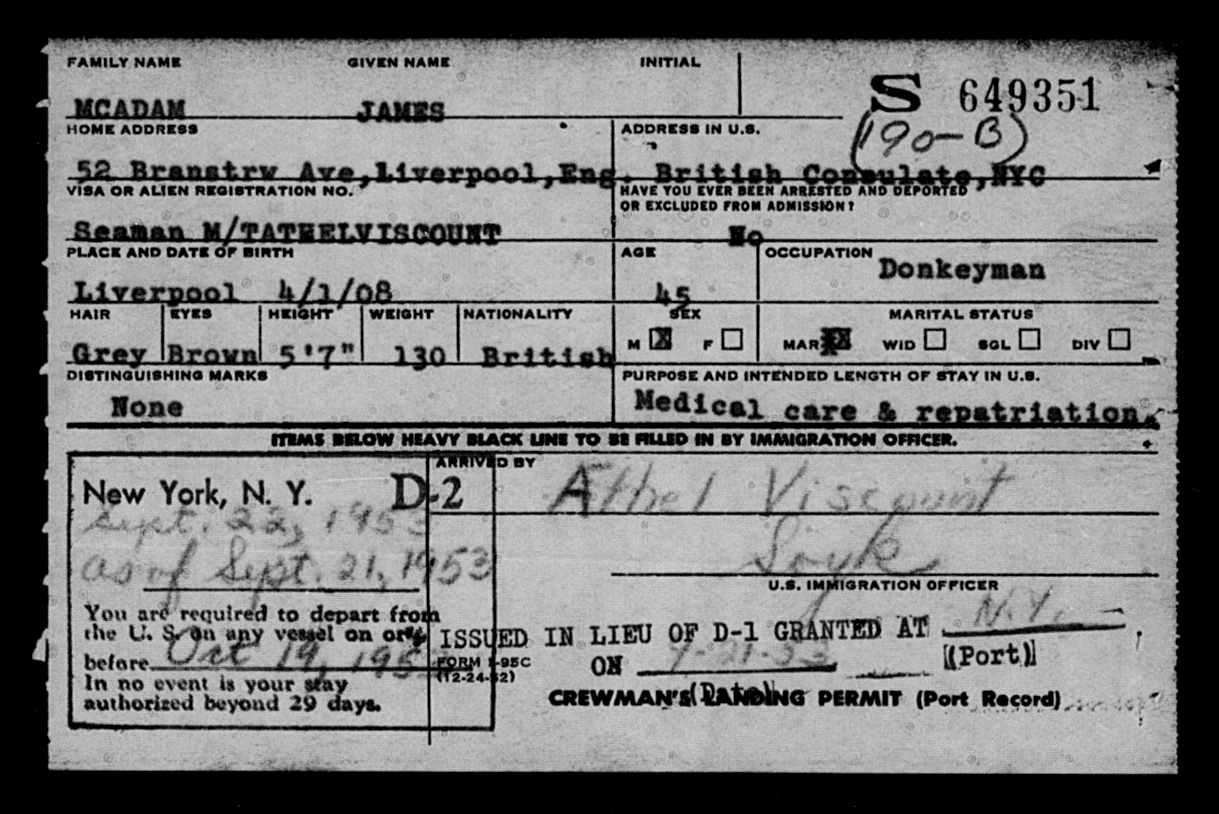 FAMILY NAME GIVEN NAME INITIAL
S 649351
MCADAM JAMES
(190-B)
HOME ADDRESS ADDRESS IN U.S.
52 Branstrw Ave,Liverpool,Eng. British Consulate,NYC
VISA OR ALIEN REGISTRATION NO. HAVE YOU EVER BEEN ARRESTED AND DEPORTED
OR EXCLUDED FROM ADMISSION?
Seaman M/TATHELVISCOUNT No
PLACE AND DATE OF BIRTH AGE OCCUPATION
Donkeyman
Liverpool 4/1/08 45
HAIR EYES HEIGHT WEIGHT NATIONALITY SEX MARITAL STATUS
M X F MAR XX WID SGL DIV
Grey Brown 5'7" 130 British
DISTINGUISHING MARKS PURPOSE AND INTENDED LENGTH OF STAY IN U.S.
None Medical care & repatriation.
ITEMS BELOW HEAVY BLACK LINE TO BE FILLED IN BY IMMIGRATION OFFICER.
ARRIVED BY
New York, N. Y. D-2 Athel Viscount
Sept. 22, 1953
as of Sept. 21, 1953
U.S. IMMIGRATION OFFICER
You are required to depart from
the U. S. on any vessel on or
before Oct 19, 195
In no event is your stay
authorized beyond 29 days.
ISSUED IN LIEU OF D-1 GRANTED AT N.Y.
(Port)
ON 9-21-53
(Date)
FORM I-95C
(12-24-52)
CREWMAN'S LANDING PERMIT (Port Record)